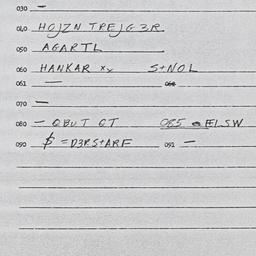 030 —
040 HOJZN TREJG3R
050 AGARTL
060 HANKAR xy S+NOL
061 —
070 —
080 — OBUT OT 085 ELSW
090 $ = D3RS+ARE 091 —